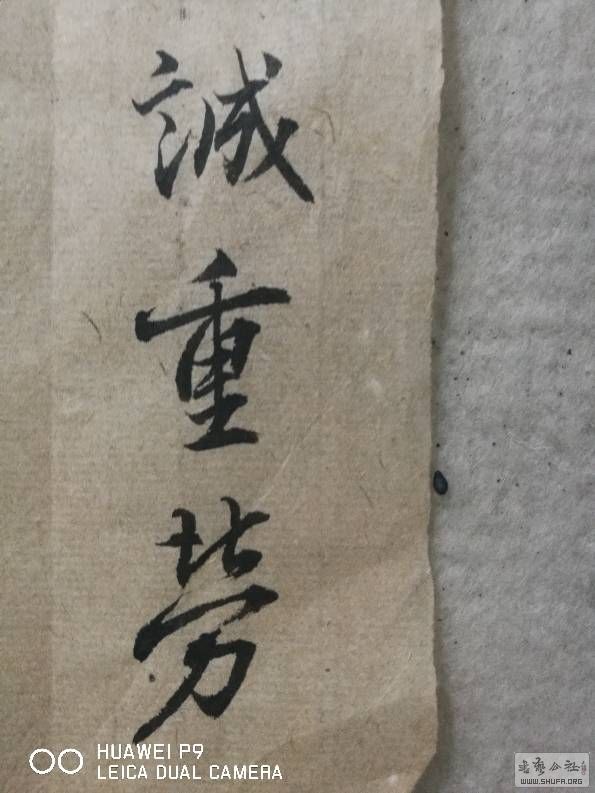 誠重勞
HUAWEI P9
LEICA DUAL CAMERA
WWW.SHUFA.ORG